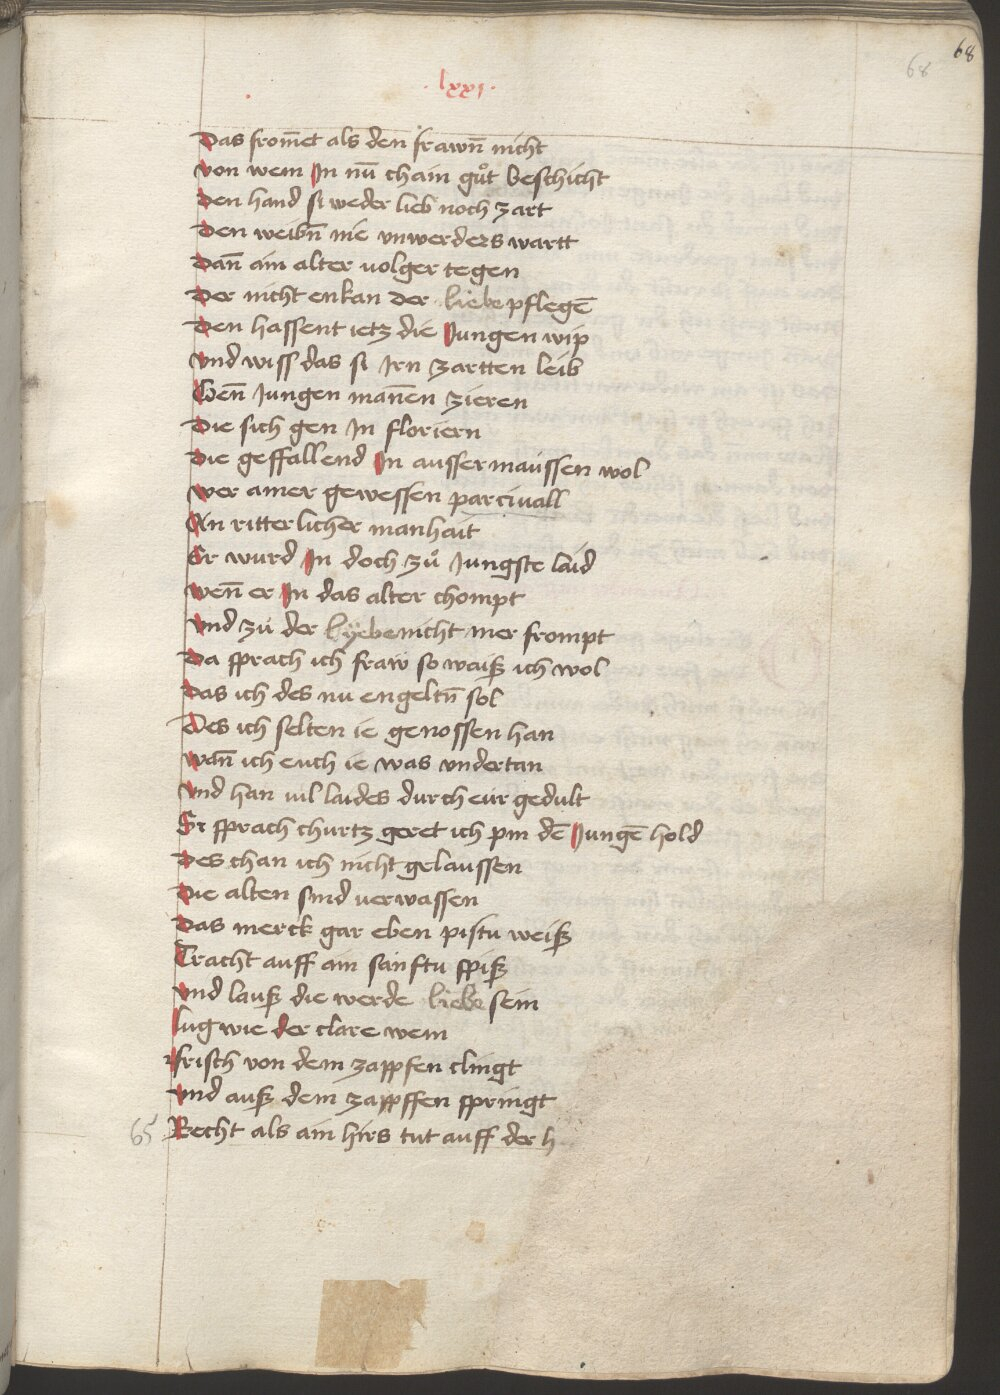 68
68
· lxxj ·
Das from̄et als den frawn̄ nicht
von wem Jn nu̅ chain gůt beschicht
Den hand si weder lieb noch zart
Den weibn̄ nie vnwerders wartt
Dan̄ ain alter volger tegen
Der nicht enkan der liebe pflege̅
Den hassent ietz die Jungen wip
Vnd wiss das si Jrn zartten leib
Gen̄ Jungen man̄en zieren
Die sich gen Jn floriern
Die geffallend Jn aussermaussen wol
Wer ainer gewessen parciuall
An ritterlicher manhait
Er wurd Jn doch zů Jungste laid
Wen̄ er Jn das alter chompt
Vnd zů der lyebe nicht mer frompt
Da sprach ich fraw so waiß ich wol
Das ich des nu engeltn̄ sol
Des ich selten ie genossen han
Wan̄ ich euch ie was vndertan
Vnd han vil laides durch eur gedult
Si sprach churtz geret ich pin de̅ Junge̅ hold
Des chan ich nicht gelaussen
Die alten sind verwassen
Das merck gar eben pistu weiß
Tracht auff ain sainftu spiß
Vnd lauß die werde liebe sein
lug wie der clare wein
frisch von dem zappfen clingt
Vnd auß dem zappffen springt
65 Recht als ain hirs tut auff der h